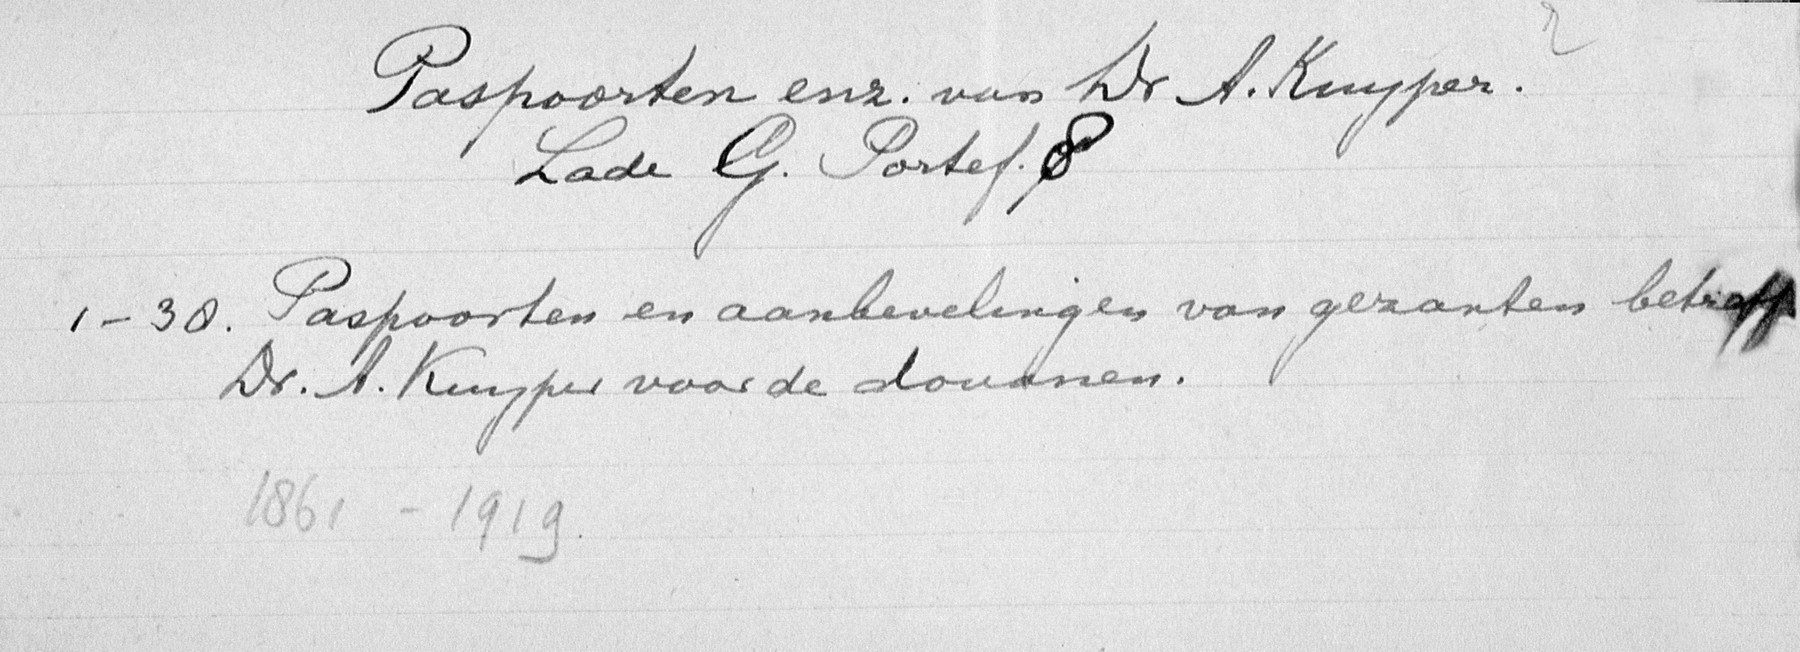 Paspoorten enz. van Dr A. Kuyper.
Lade G. Portef. 8
1-38. Paspoorten en aanbevelingen van gezanten betreff
Dr. A. Kuyper voor de douanen.
1861 - 1919.